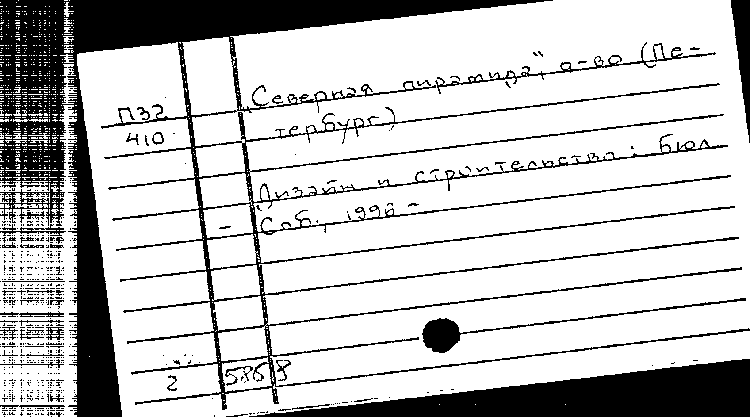 П32
410
„Северная пирамида", о-во (Пе-
тербург)
Дизайн и строительство: бюл
- Спб., 1996 -
2 5868